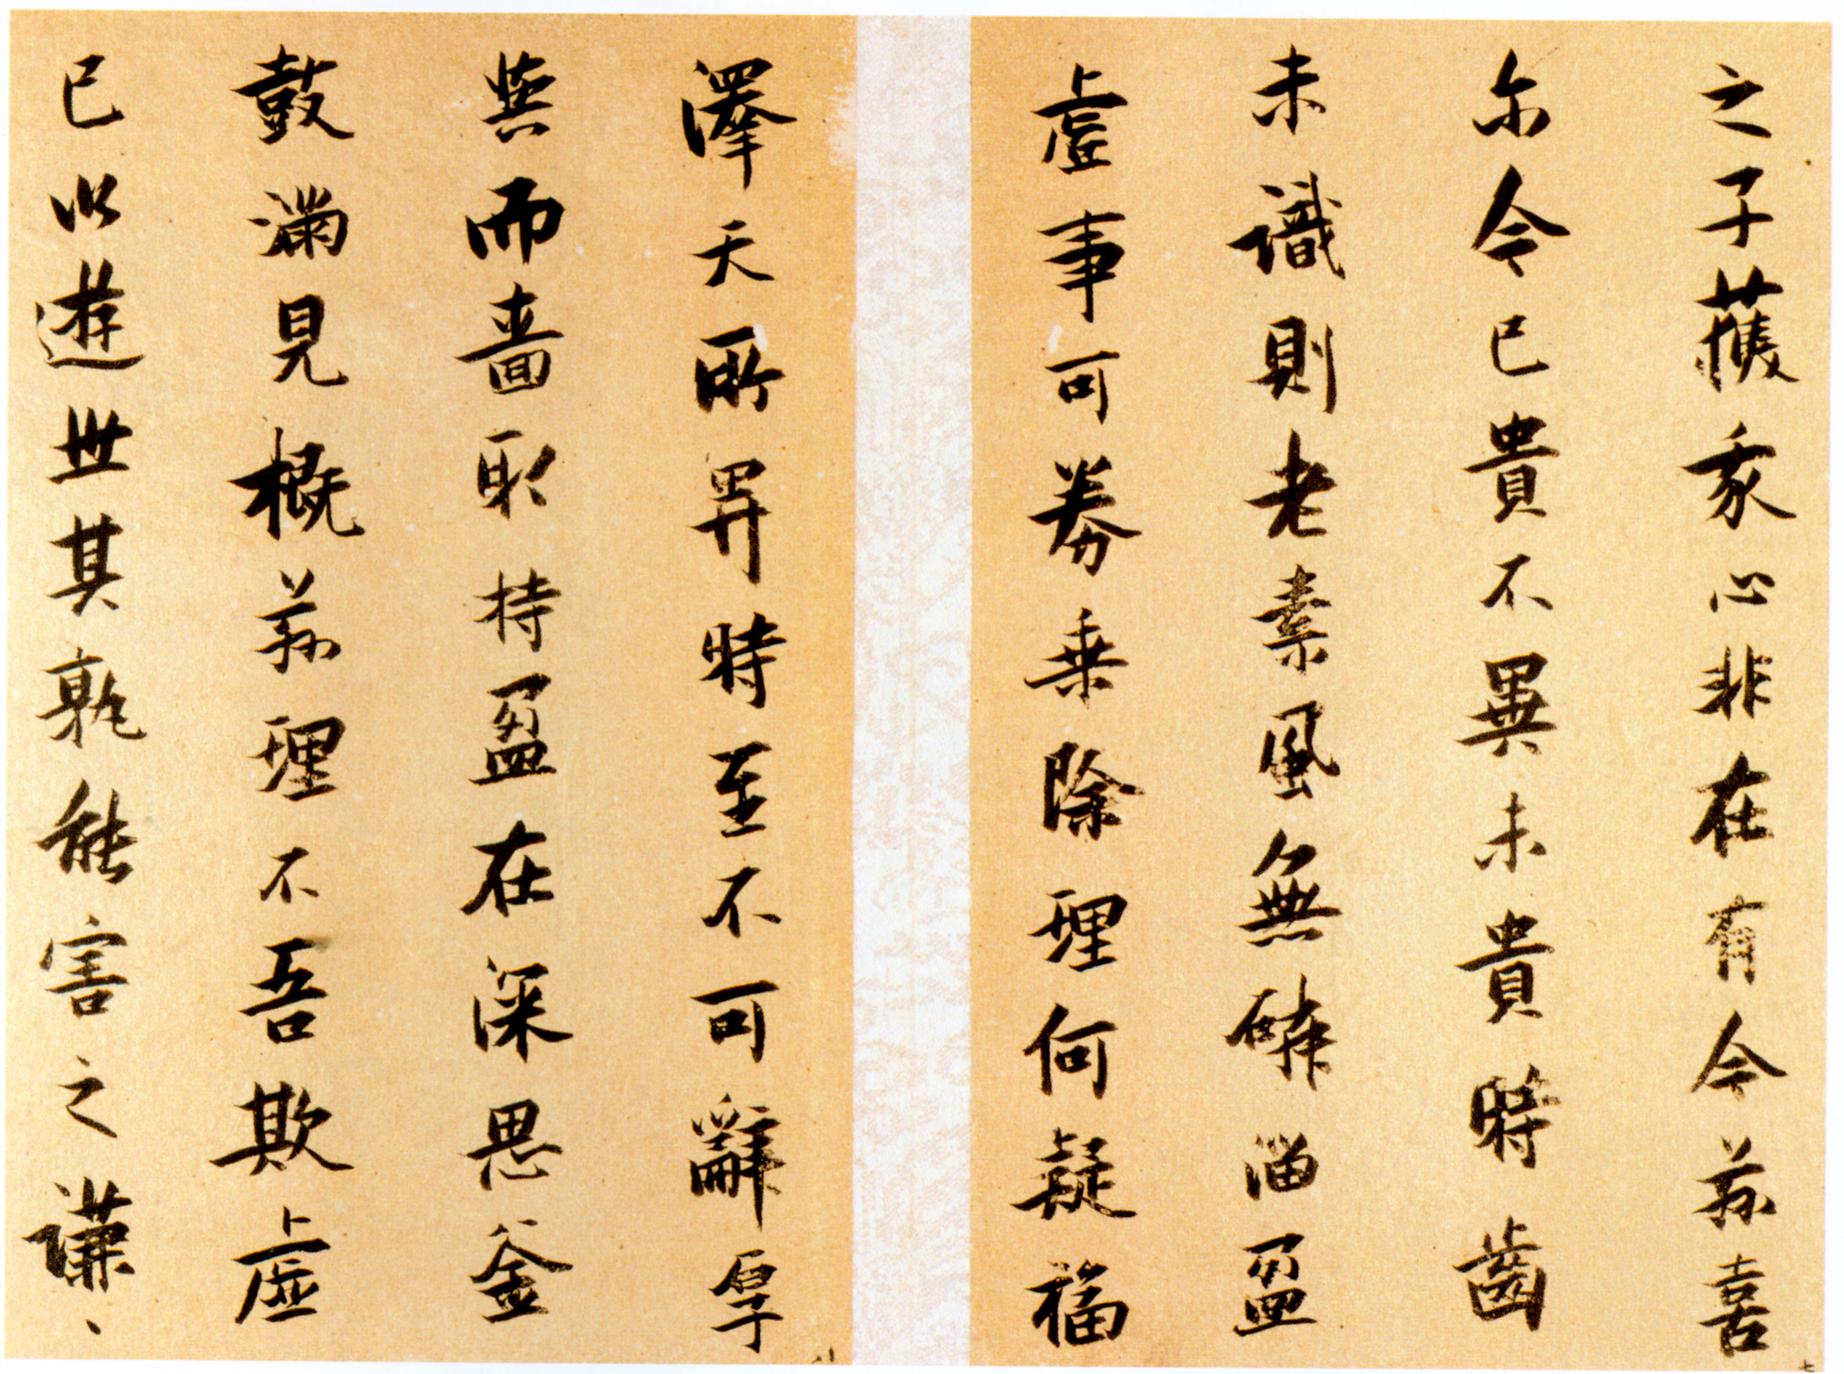 之子獲我心非在有今茲喜
尔令已貴不異未貴時齒
未識則老素風無磷淄盈
虛事可券乘除理何疑福
澤天所畀時至不可辭厚
與而嗇取持盈在深思釜
鼓滿見概茲理不吾欺虛
已以遊世其孰能害之謙、